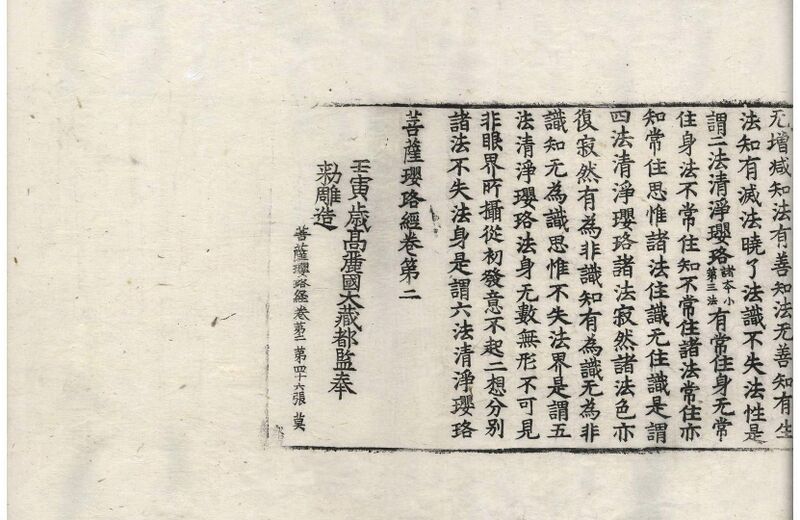 无增减知法有善知法无善知有生
法知有滅法曉了法識不失法性是
謂二法清淨瓔珞諸夲小第三法有常住身无常
住身法不常住知不常住諸法常住亦
知常住思惟諸法住識无住識是謂
四法清淨瓔珞諸法寂然諸法色亦
復寂然有為非識知有為識无為非
識知无為識思惟不失法界是謂五
法清淨瓔珞法身无數無形不可見
非眼界所攝從初發意不起二想分別
諸法不失法身是謂六法清淨瓔珞
菩薩瓔珞經卷第二
壬寅歲高麗國大藏都監奉
勑雕造
菩薩瓔珞経卷第二 第四十六張 莫